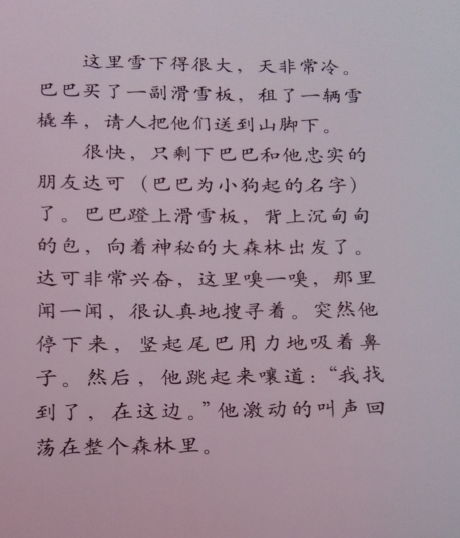 这里雪下得很大，天非常冷。
巴巴买了一副滑雪板，租了一辆雪
橇车，请人把他们送到山脚下。
很快，只剩下巴巴和他忠实的
朋友达可（巴巴为小狗起的名字）
了。巴巴蹬上滑雪板，背上沉甸甸
的包，向着神秘的大森林出发了。
达可非常兴奋，这里嗅一嗅，那里
闻一闻，很认真地搜寻着。突然他
停下来，竖起尾巴用力地吸着鼻
子。然后，他跳起来嚷道：“我找
到了，在这边。”他激动的叫声回
荡在整个森林里。